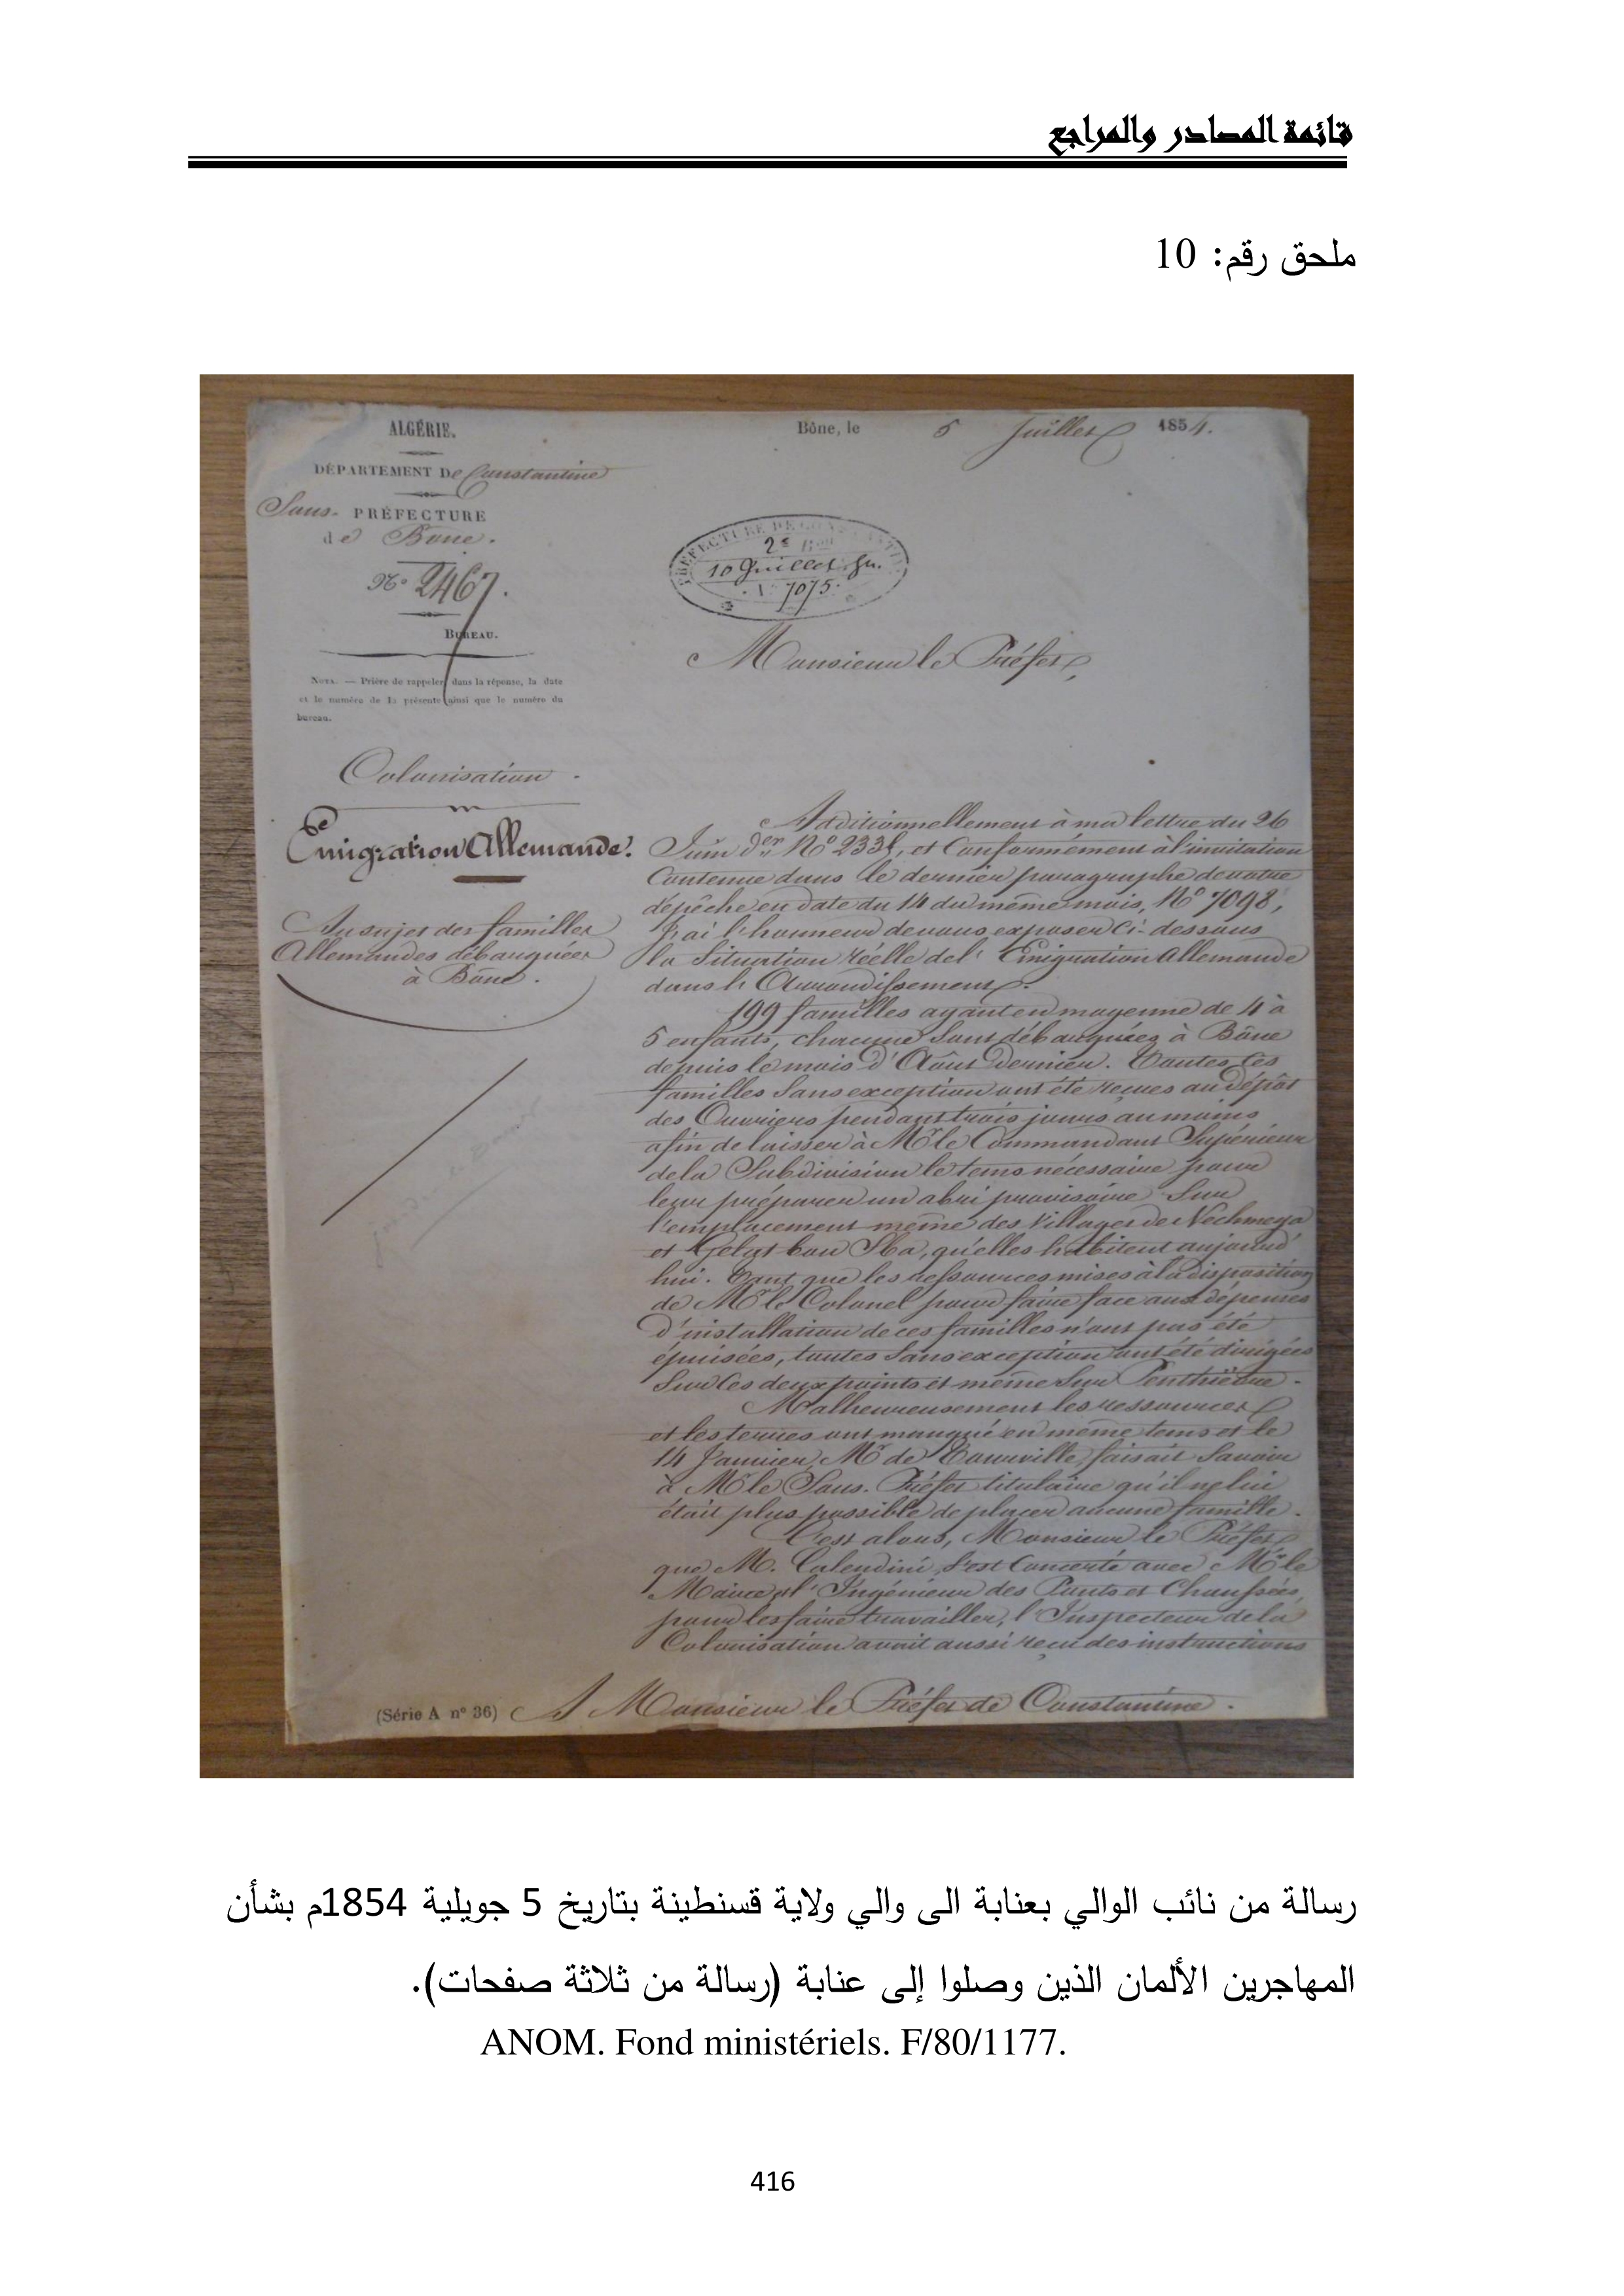 قائمة المصادر والمراجع
ملحق رقم: 10
ALGÉRIE.
DÉPARTEMENT De Constantine
Sous-PRÉFECTURE
de Bone.
No 2467.
BUREAU.
NOTA. — Prière de rappeler dans la réponse, la date
et le numéro de la présente ainsi que le numéro du
bureau.
Bône, le 5 Juillet 1854.
PRÉFECTURE DE CONSTANTINE
2e Bau
10 Juillet
N° 7075
Monsieur le Préfet,
Colonisation.
Émigration Allemande.
Au sujet des familles
Allemandes débarquées
à Bône.
Additionnellement à ma lettre du 26
Juin der No 2335, et Conformément à l'invitation
Contenue dans le dernier paragraphe de votre
dépêche en date du 14 du même mois, No 7098,
J'ai l'honneur de vous exposer Ci-dessous
la Situation réelle de l'Émigration Allemande
dans l'Arrondissement.
199 familles ayant en moyenne de 4 à
5 enfants, chacune Sont débarquées à Bône
depuis le mois d'Août Dernier. Toutes Ces
familles Sans exception ont été reçues au dépôt
des Ouvriers pendant trois jours au moins
afin de laisser à Mr le Commandant Supérieur
de la Subdivision le tems nécessaire pour
leur préparer un abri provisoire Sur
l'emplacement même des Villages de Nechmeya
et Gelaat bou Sba, qu'elles habitent aujourd'
hui. Tant que les ressources mises à la disposition
de Mr le Colonel pour faire face aux dépenses
d'installation de ces familles n'ont pas été
épuisées, toutes Sans exception ont été dirigées
Sur Ces deux points et même Sur Penthièvre.
Malheureusement les ressources
et les terres ont manqué en même tems et le
14 Janvier, Mr de Tourville faisait Savoir
à Mr le Sous-Préfet titulaire qu'il ne lui
était plus possible de placer aucune famille.
C'est alors, Monsieur le Préfet
que M. Calendini s'est Concerté avec Mr le
Maire et l'Ingénieur des Ponts et Chaussées,
pour les faire travailler, l'Inspecteur de la
Colonisation avait aussi reçu des instructions
(Série A n° 36) A Monsieur le Préfet de Constantine.
رسالة من نائب الوالي بعنابة الى والي ولاية قسنطينة بتاريخ 5 جويلية 1854م بشأن
المهاجرين الألمان الذين وصلوا إلى عنابة (رسالة من ثلاثة صفحات).
ANOM. Fond ministériels. F/80/1177.
416